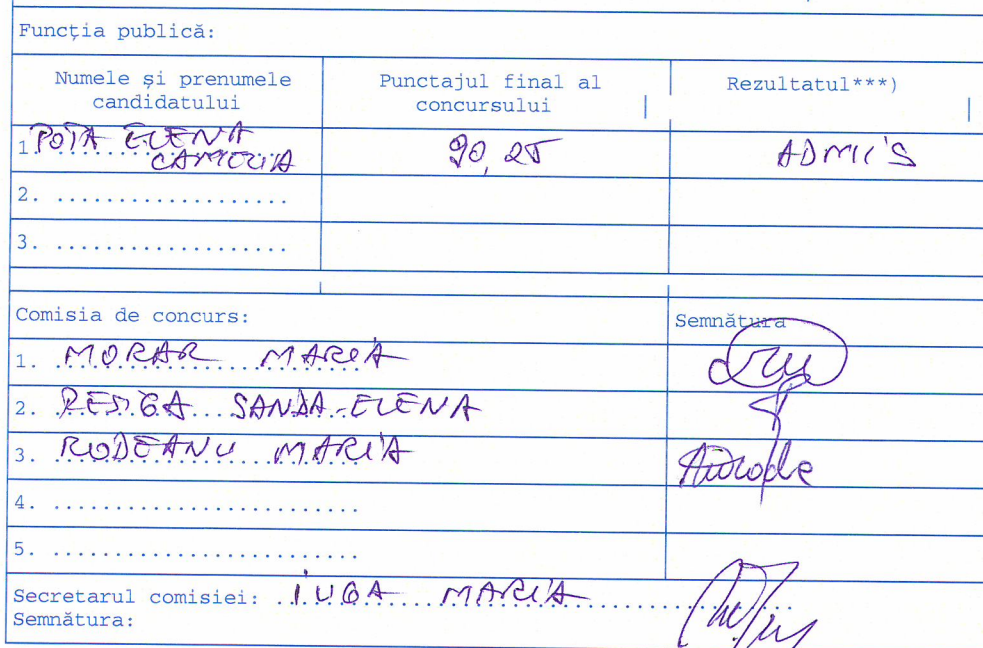 Funcția publică:
Numele și prenumele candidatului | Punctajul final al concursului | Rezultatul***)
1. POTA ELENA CAMELIA | 90,25 | ADMIS
2. ...................
3. ...................
Comisia de concurs: | Semnătura
1. MORAR MARIA
2. SANDA-ELENA
3. RODEANU MARIA
4. .........................
5. .........................
Secretarul comisiei: IUGA MARIA
Semnătura: